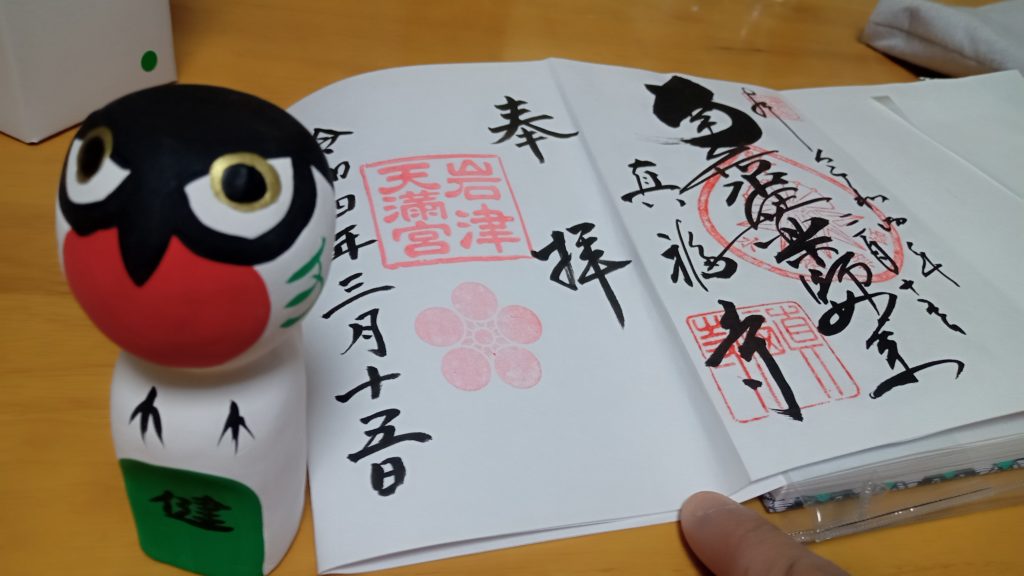 奉拝
岩津
天満宮
令和四年三月十五日
真福寺
令和四年三月十五日
健